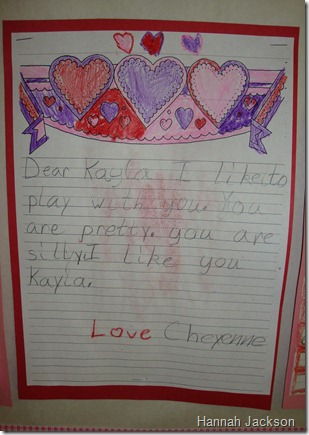 Dear Kayla I like to
play with you. You
are pretty. you are
silly. I like you
Kayla.
Love Cheyenne
Hannah Jackson